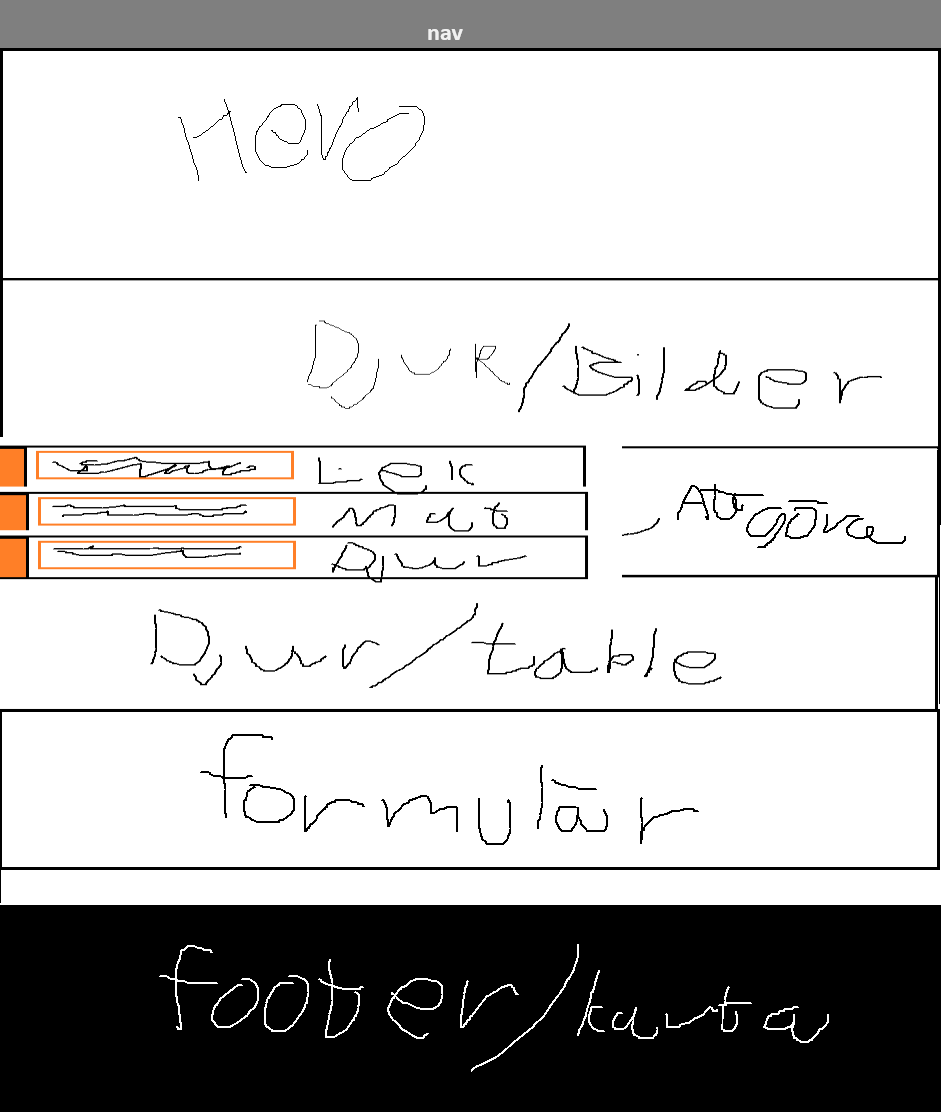 nav
Hero
Djur/Bilder
Lek
Mat
Att göra
Djur
Djur/table
formulär
footer/karta